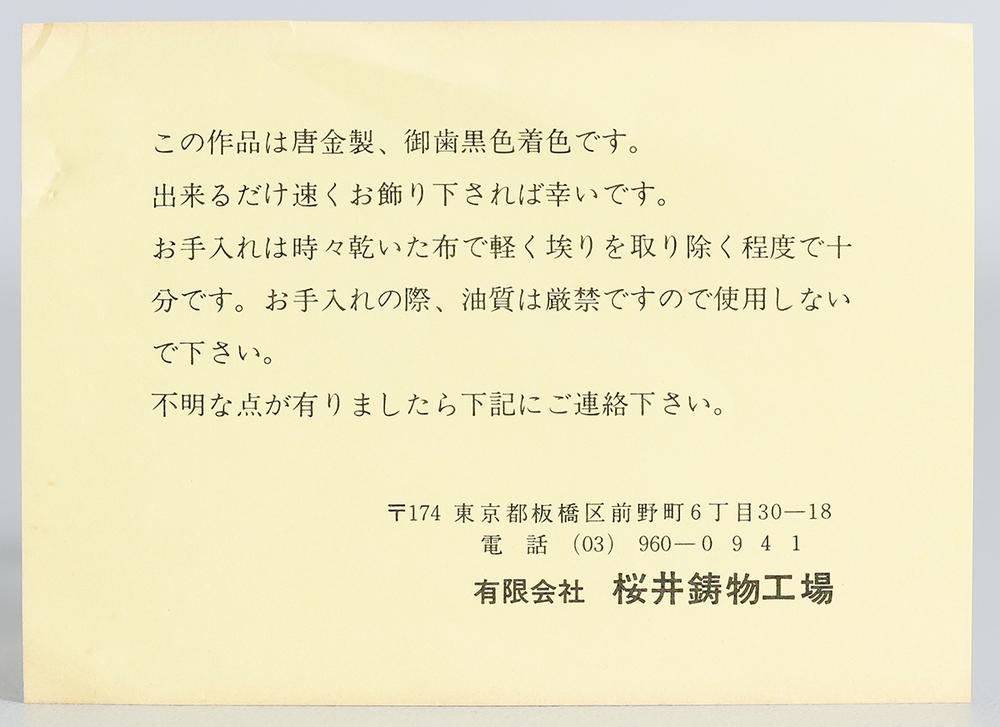 この作品は唐金製、御歯黒色着色です。
出来るだけ速くお飾り下されば幸いです。
お手入れは時々乾いた布で軽く埃りを取り除く程度で十
分です。お手入れの際、油質は厳禁ですので使用しない
で下さい。
不明な点が有りましたら下記にご連絡下さい。
〒174 東京都板橋区前野町6丁目30—18
電 話 (03) 960—0 9 4 1
有限会社 桜井鋳物工場